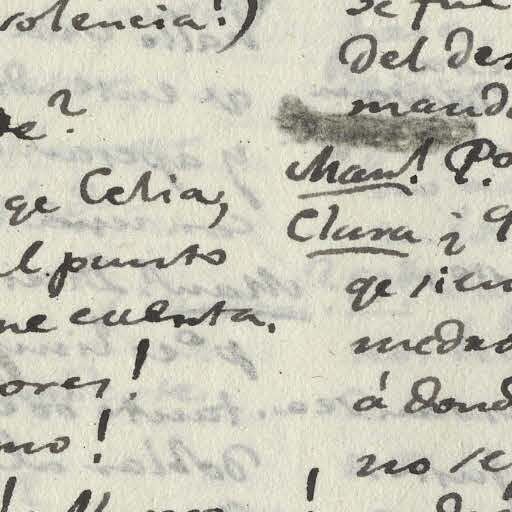 volencia!)
te?
qe Celia,
al punto
me cuenta.
ores!
mo!
se fue
Del des
manda
Man! Po
Clara ¿ q
qe sien
medro
á dond
no se